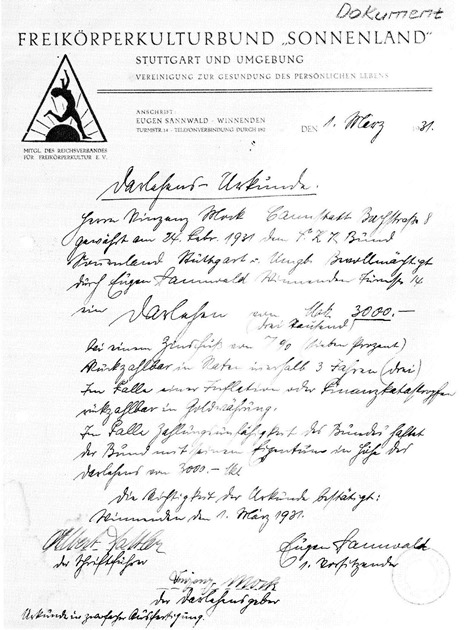 Dokument
FREIKÖRPERKULTURBUND „SONNENLAND"
STUTTGART UND UMGEBUNG
VEREINIGUNG ZUR GESUNDUNG DES PERSÖNLICHEN LEBENS
ANSCHRIFT:
EUGEN SANNWALD - WINNENDEN
TURMSTR. 14 - TELEFONVERBINDUNG DURCH 192
DEN 1. März 1931.
MITGL. DES REICHSVERBANDES
FÜR FREIKÖRPERKULTUR E. V.
Darlehens-Urkunde.
Herr Vinzenz Mock Cannstatt Bachstrasse 8
gewährt am 24. Febr. 1931 dem F.K.K. Bund
Sonnenland Stuttgart u. Umgb. Bevollmächtigt
durch Eugen Sannwald Winnenden Turmstr. 14
ein Darlehen von Mk. 3000.-
(drei Tausend)
bei einem Zinsfuß von 7% (sieben Prozent)
Rückzahlbar in Raten innerhalb 3 Jahren (drei)
Im Falle einer Inflation oder Finanzkatastrophen
rückzahlbar in Goldwährung.
Im Falle Zahlungsunfähigkeit des Bundes haftet
der Bund mit seinem Eigentum in Höhe des
Darlehens von 3000.- Mk
Die Richtigkeit der Urkunde bestätigt:
Winnenden den 1. März 1931.
Albert
der Schriftführer
Eugen Sannwald
1. Vorsitzender
Vinzenz Mock
der Darlehensgeber
Urkunde in zweifacher Ausfertigung.